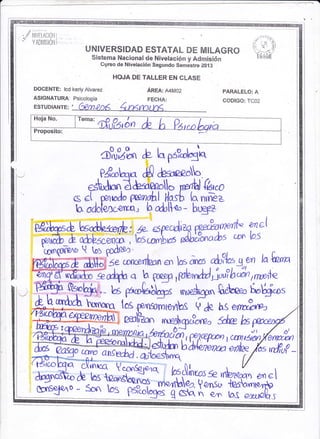 NIVELACIÓN
Y ADMISIÓN
UNIVERSIDAD ESTATAL DE MILAGRO
Sistema Nacional de Nivelación y Admisión
Curso de Nivelación Segundo Semestre 2013
HOJA DE TALLER EN CLASE
DOCENTE: lcd karly Alvarez ÁREA: A4M02 PARALELO: A
ASIGNATURA: Psicología FECHA: CODIGO: TC02
ESTUDIANTE:
Hoja No. Tema: División de la Psicología
Proposito:
División de la psicología
Psicología del desarrollo
estudian el desarrollo mental físico
es el periodo prenatal hasta la niñez
la adolescencia, la adulto - 
Psicólogos de la adolescente: se especializa en el
periodo de adolescencia, los cambios relacionados con los
y los padres.
Psicólogos de adulto se concentran en los años adultos y en la forma
en q el individuo se adapta a la pareja, paternidad, jubilación, muerte
los investigan factores biológicos
de la conducta humana, los pensamientos y de las emociones
Psicología experimental realizan investigaciones sobre los procesos
básicos: aprendizaje, memoria, sensación, percepción,
de la personalidad: estudian la diferencia entre los
rasgo como ansiedad, autoestima
Psicología clínica y consejería los clínicos se interesan en el
diagnóstico de los mentales y en su tratamiento
consejero - Son los psicólogos q están en las escuelas